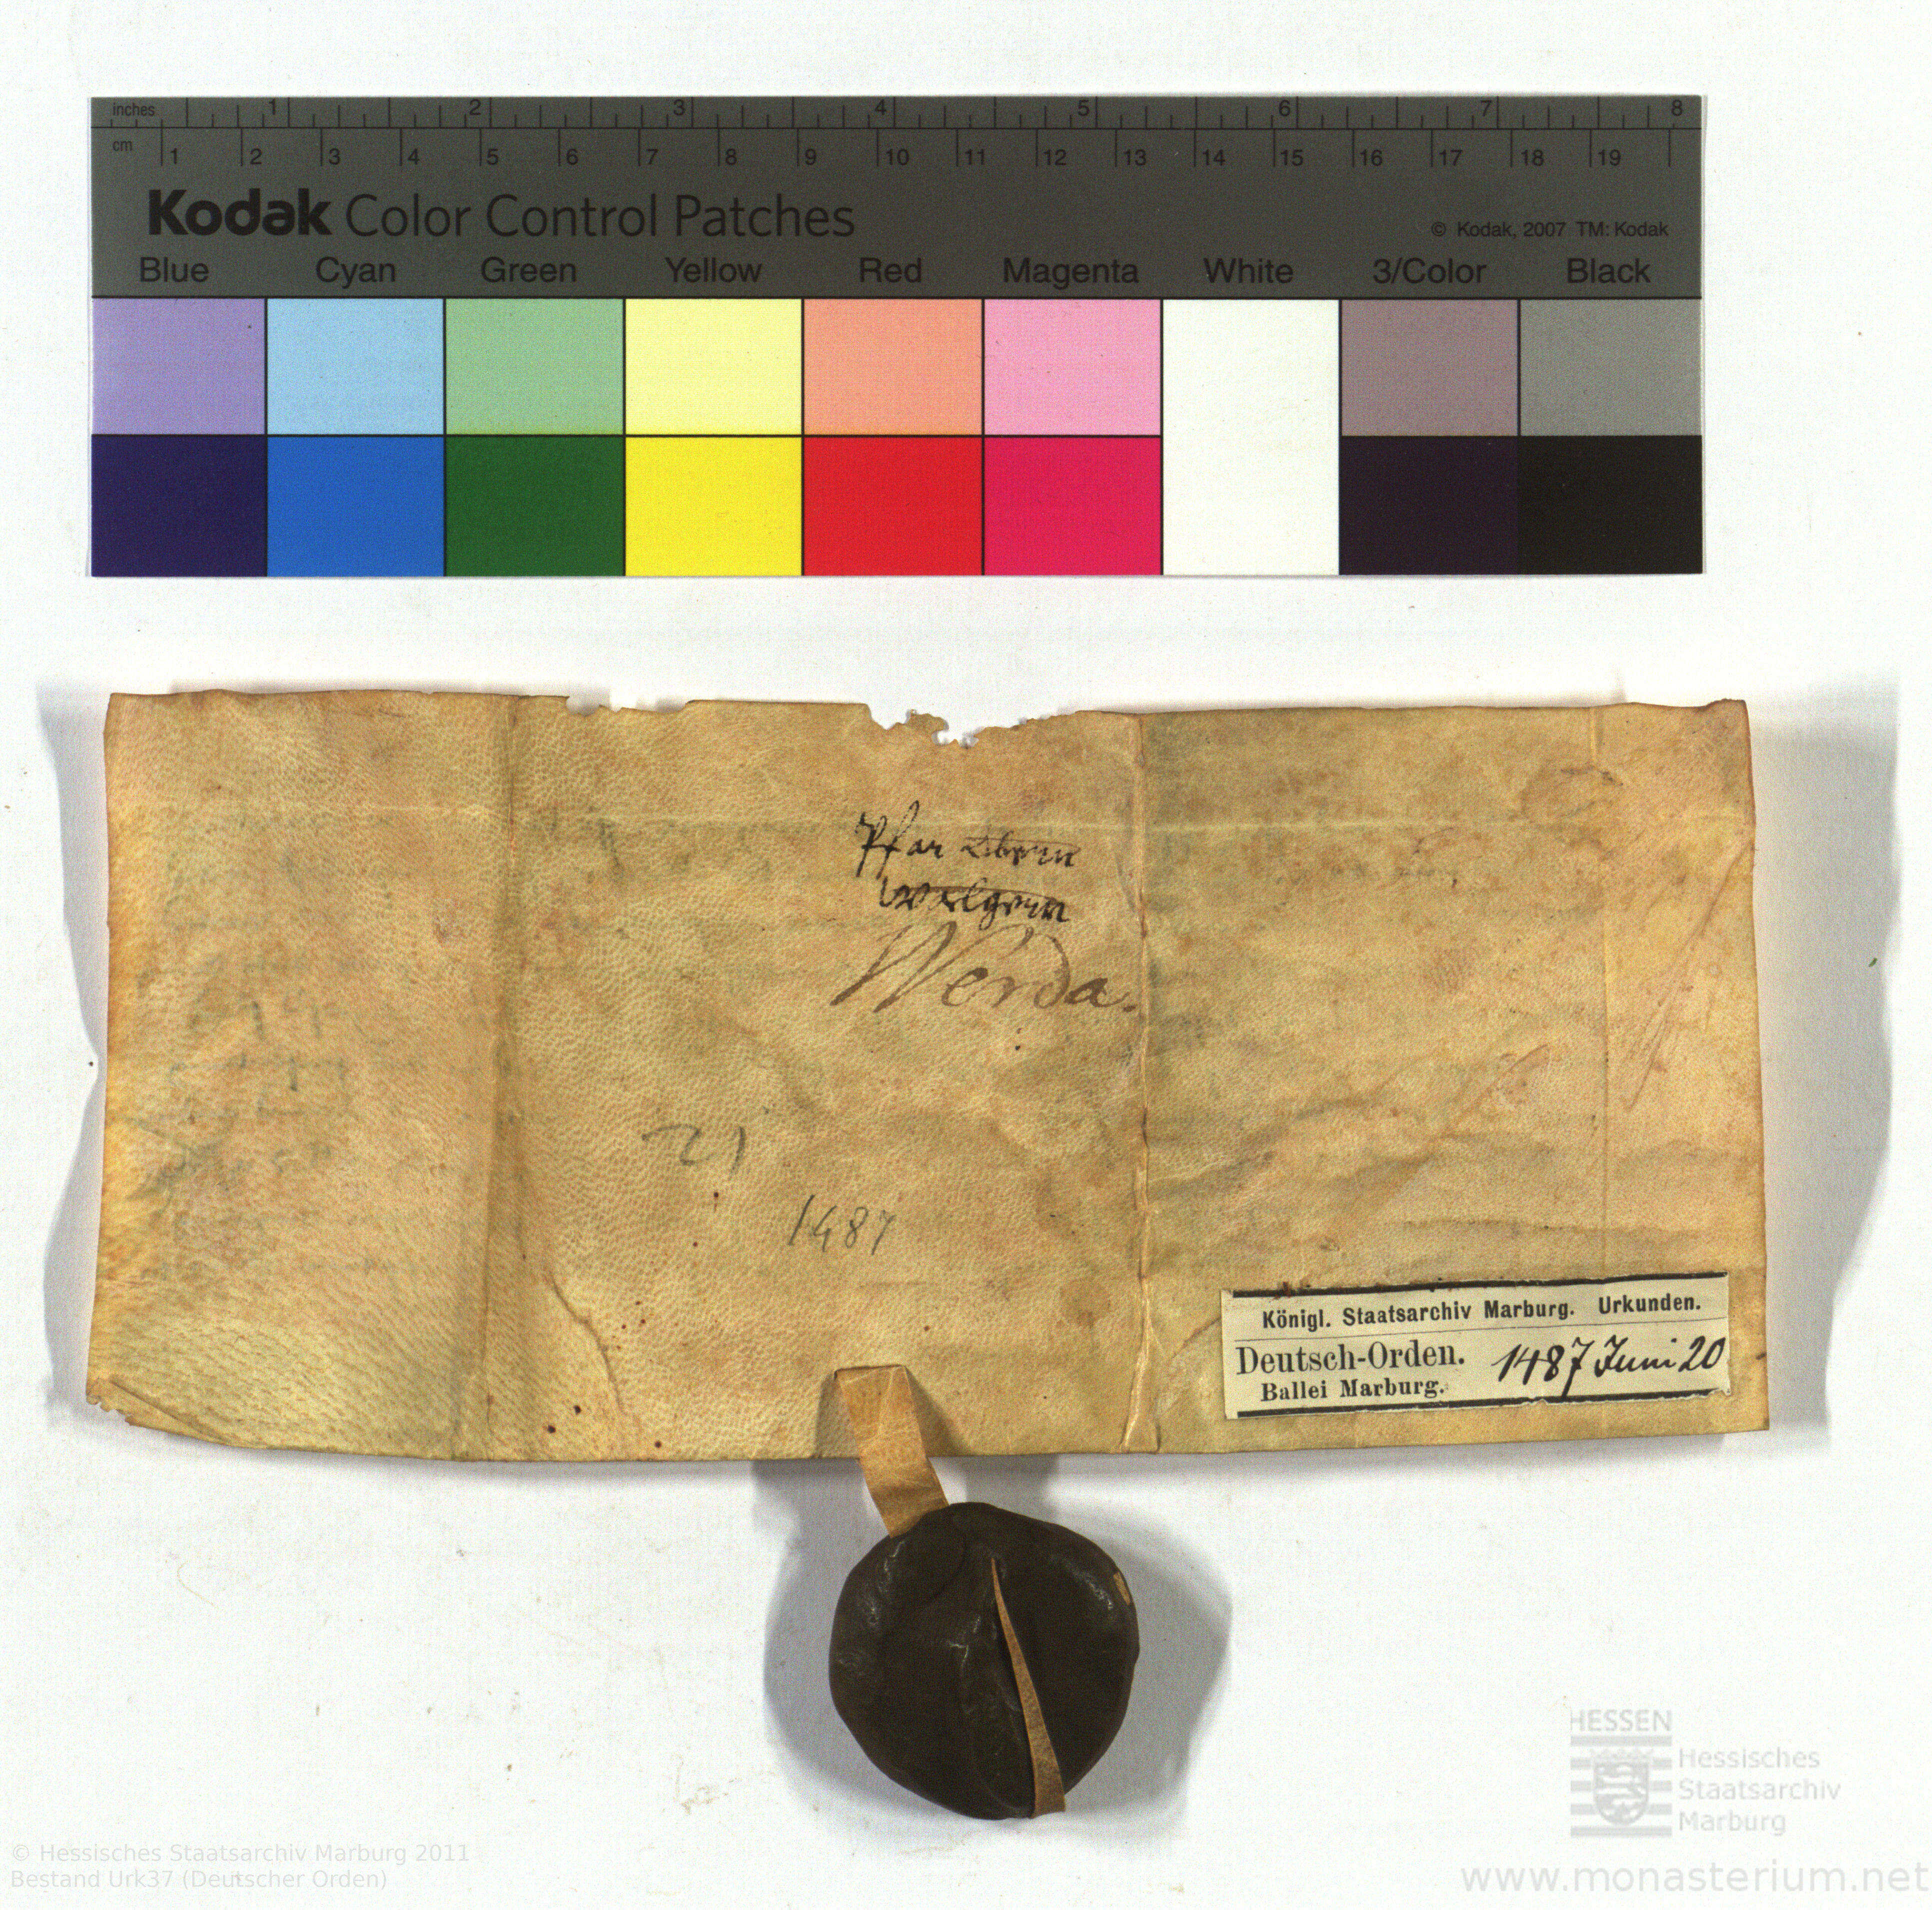 inches 1 2 3 4 5 6 7 8
cm 1 2 3 4 5 6 7 8 9 10 11 12 13 14 15 16 17 18 19
Kodak Color Control Patches
© Kodak, 2007 TM: Kodak
Blue Cyan Green Yellow Red Magenta White 3/Color Black
Pfar
Walgern
Werda.
21
1487
Königl. Staatsarchiv Marburg. Urkunden.
Deutsch-Orden. 1487 Juni 20
Ballei Marburg.
HESSEN
Hessisches
Staatsarchiv
Marburg
© Hessisches Staatsarchiv Marburg 2011
Bestand Urk37 (Deutscher Orden)
www.monasterium.net